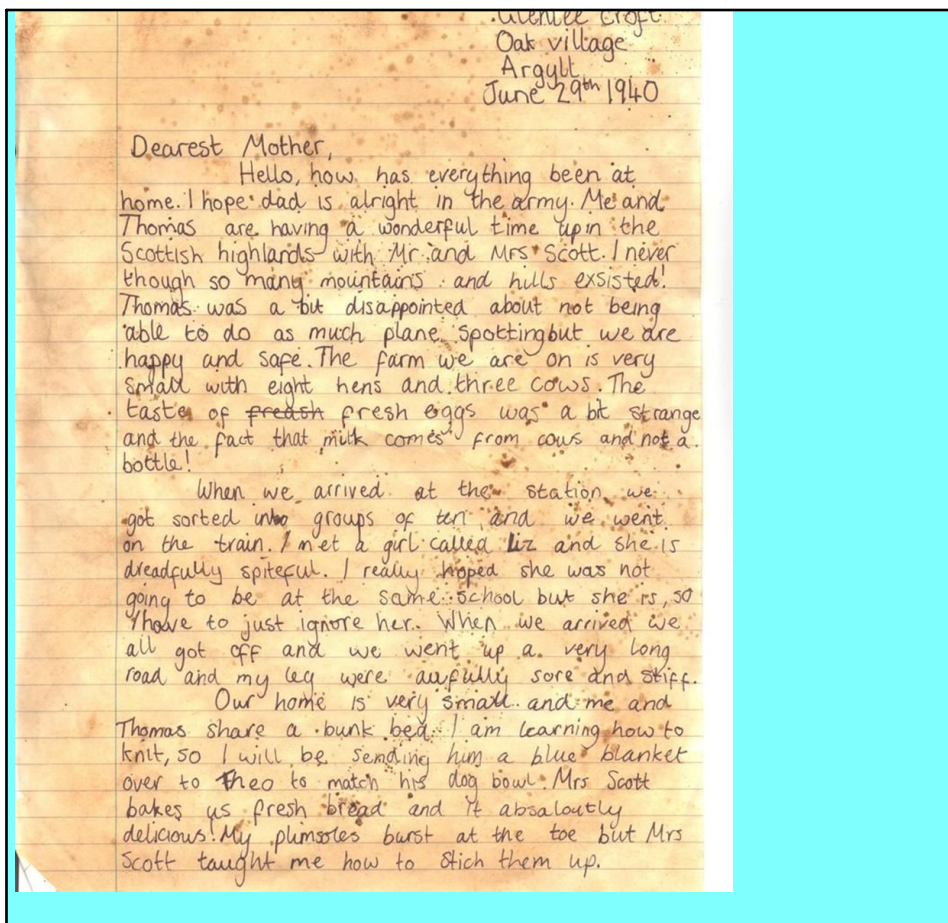 Glenlee Croft
Oak village
Argyll
June 29th 1940
Dearest Mother,
Hello, how has everything been at
home. I hope dad is alright in the army. Me and
Thomas are having a wonderful time up in the
Scottish highlands with Mr and Mrs Scott. I never
though so many mountains and hills exsisted!
Thomas was a bit disappointed about not being
able to do as much plane spotting but we are
happy and safe. The farm we are on is very
small with eight hens and three cows. The
taste of freash fresh eggs was a bit strange
and the fact that milk comes from cows and not a
bottle!
When we arrived at the station we
got sorted into groups of ten and we went
on the train. I met a girl called Liz and she is
dreadfully spiteful. I really hoped she was not
going to be at the same school but she is, so
I have to just ignore her. When we arrived we
all got off and we went up a very long
road and my leg were awfully sore and stiff.
Our home is very small and me and
Thomas share a bunk bed. I am learning how to
knit, so I will be sending him a blue blanket
over to Theo to match his dog bowl. Mrs Scott
bakes us fresh bread and it absaloutly
delicious! My plimsoles burst at the toe but Mrs
Scott taught me how to stich them up.